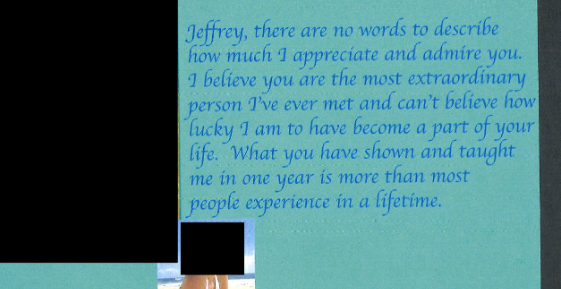 Jeffrey, there are no words to describe
how much I appreciate and admire you.
I believe you are the most extraordinary
person I've ever met and can't believe how
lucky I am to have become a part of your
life. What you have shown and taught
me in one year is more than most
people experience in a lifetime.